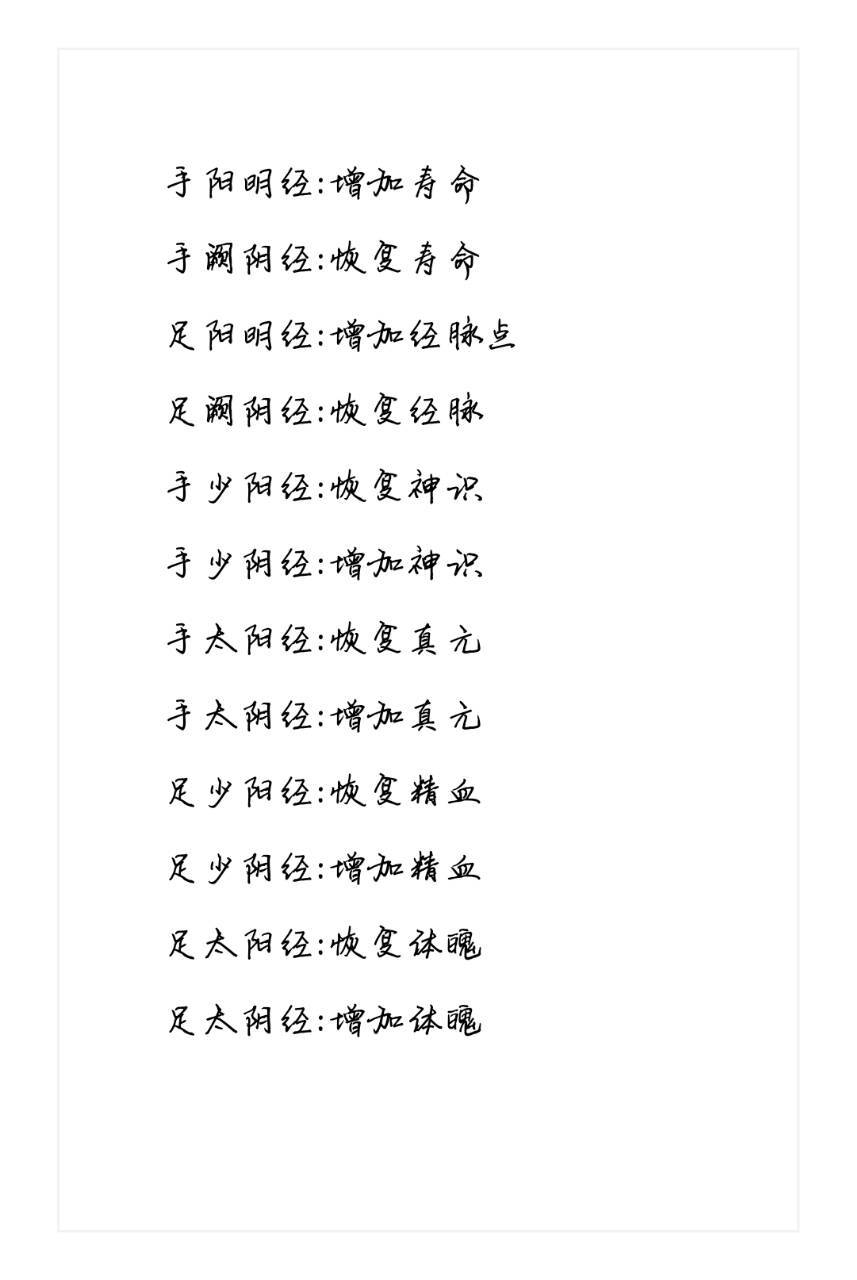 手阳明经:增加寿命
手阙阴经:恢复寿命
足阳明经:增加经脉点
足阙阴经:恢复经脉
手少阳经:恢复神识
手少阴经:增加神识
手太阳经:恢复真元
手太阴经:增加真元
足少阳经:恢复精血
足少阴经:增加精血
足太阳经:恢复体魄
足太阴经:增加体魄